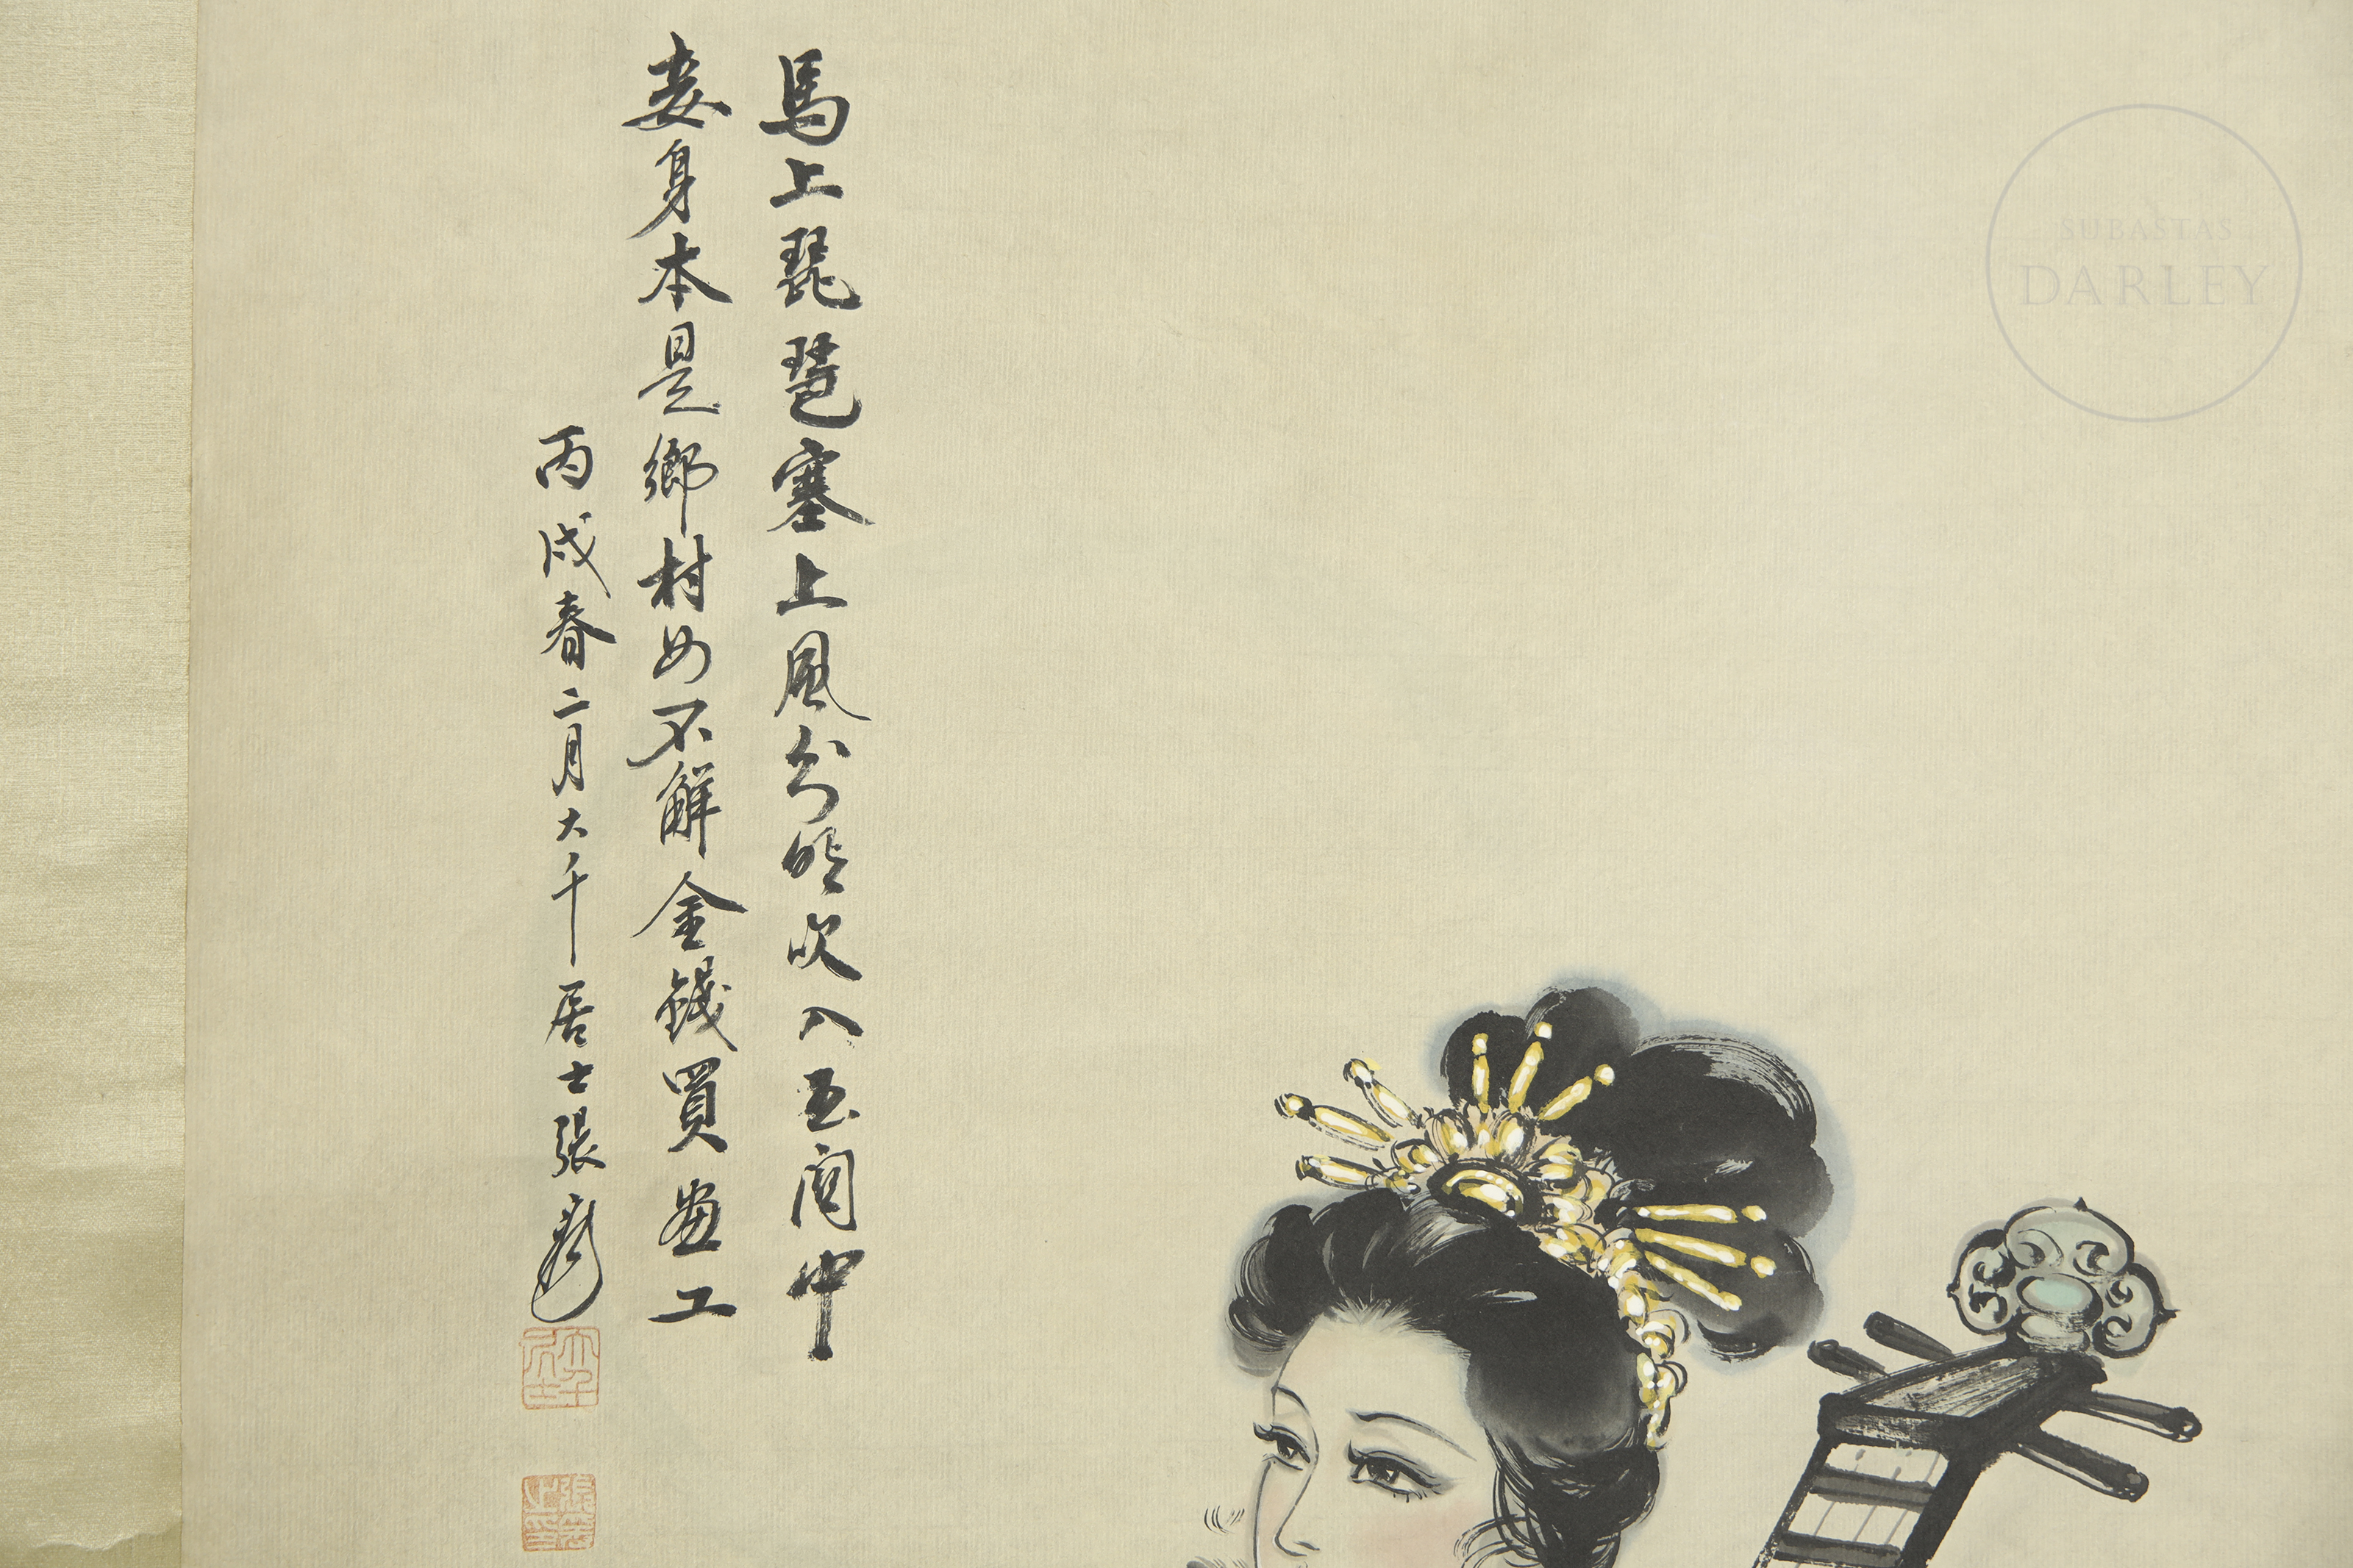 馬上琵琶塞上風分明吹入玉關中
妾身本是鄉村女不解金錢買畫工
丙戌春二月大千居士張爰
大千居士
張爰之印
SUBASTAS
DARLEY